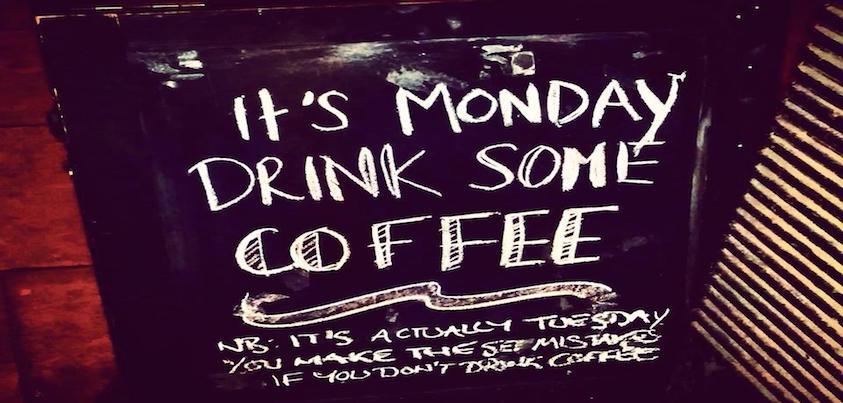 IT'S MONDAY
DRINK SOME
COFFEE
NB: IT'S ACTUALLY TUESDAY
YOU MAKE THESE MISTAKES
IF YOU DON'T DRINK COFFEE